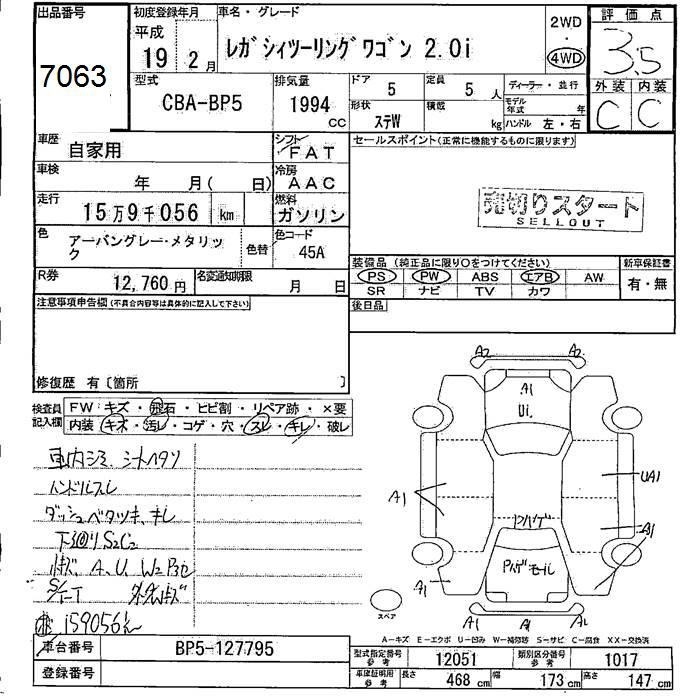 出品番号
7063
初度登録年月
平成
19 2月
車名・グレード
レガシィツーリングワゴン 2.0i
2WD
・
4WD
評価点
3.5
外装 内装
C C
型式
CBA-BP5
排気量
1994
CC
ドア
5
定員
5 人
形状
ステW
積載
kg
ディーラー・並行
モデル年式 年
ハンドル 左・右
車歴
自家用
シフト
FAT
車検
年 月( 日)
冷房
AAC
走行
15万9千056 km
燃料
ガソリン
色
アーバングレー・メタリック
色替
色コード
45A
R券
12,760円
名変通知期限
月 日
セールスポイント(正常に機能するものに限ります)
売切りスタート
SELLOUT
装備品(純正品に限り○をつけてください)
PS PW ABS エアB AW
SR ナビ TV カワ
新車保証書
有・無
後日品
注意事項申告欄(不具合内容等は具体的に記入して下さい)
修復歴 有〔箇所 〕
検査員
記入欄
FW:キズ・飛石・ヒビ割・リペア跡・×要
内装・キズ・汚レ・コゲ・穴・スレ・キレ・破レ
車内シミ シートヘタリ
ハンドルスレ
ダッシュベタツキ、キレ
下廻りS2C2
A、U、W2
159056km
A2 A2
A1
U1
A1
UA1
A1
A1
A1
スペア
A-キズ E-エクボ U-凹み W-補修跡 S-サビ C-腐食 XX-交換済
車台番号
BP5-127795
登録番号
型式指定番号
参考
12051
類別区分番号
参考
1017
車庫証明用
参考
長さ 468 cm
幅 173 cm
高さ 147 cm